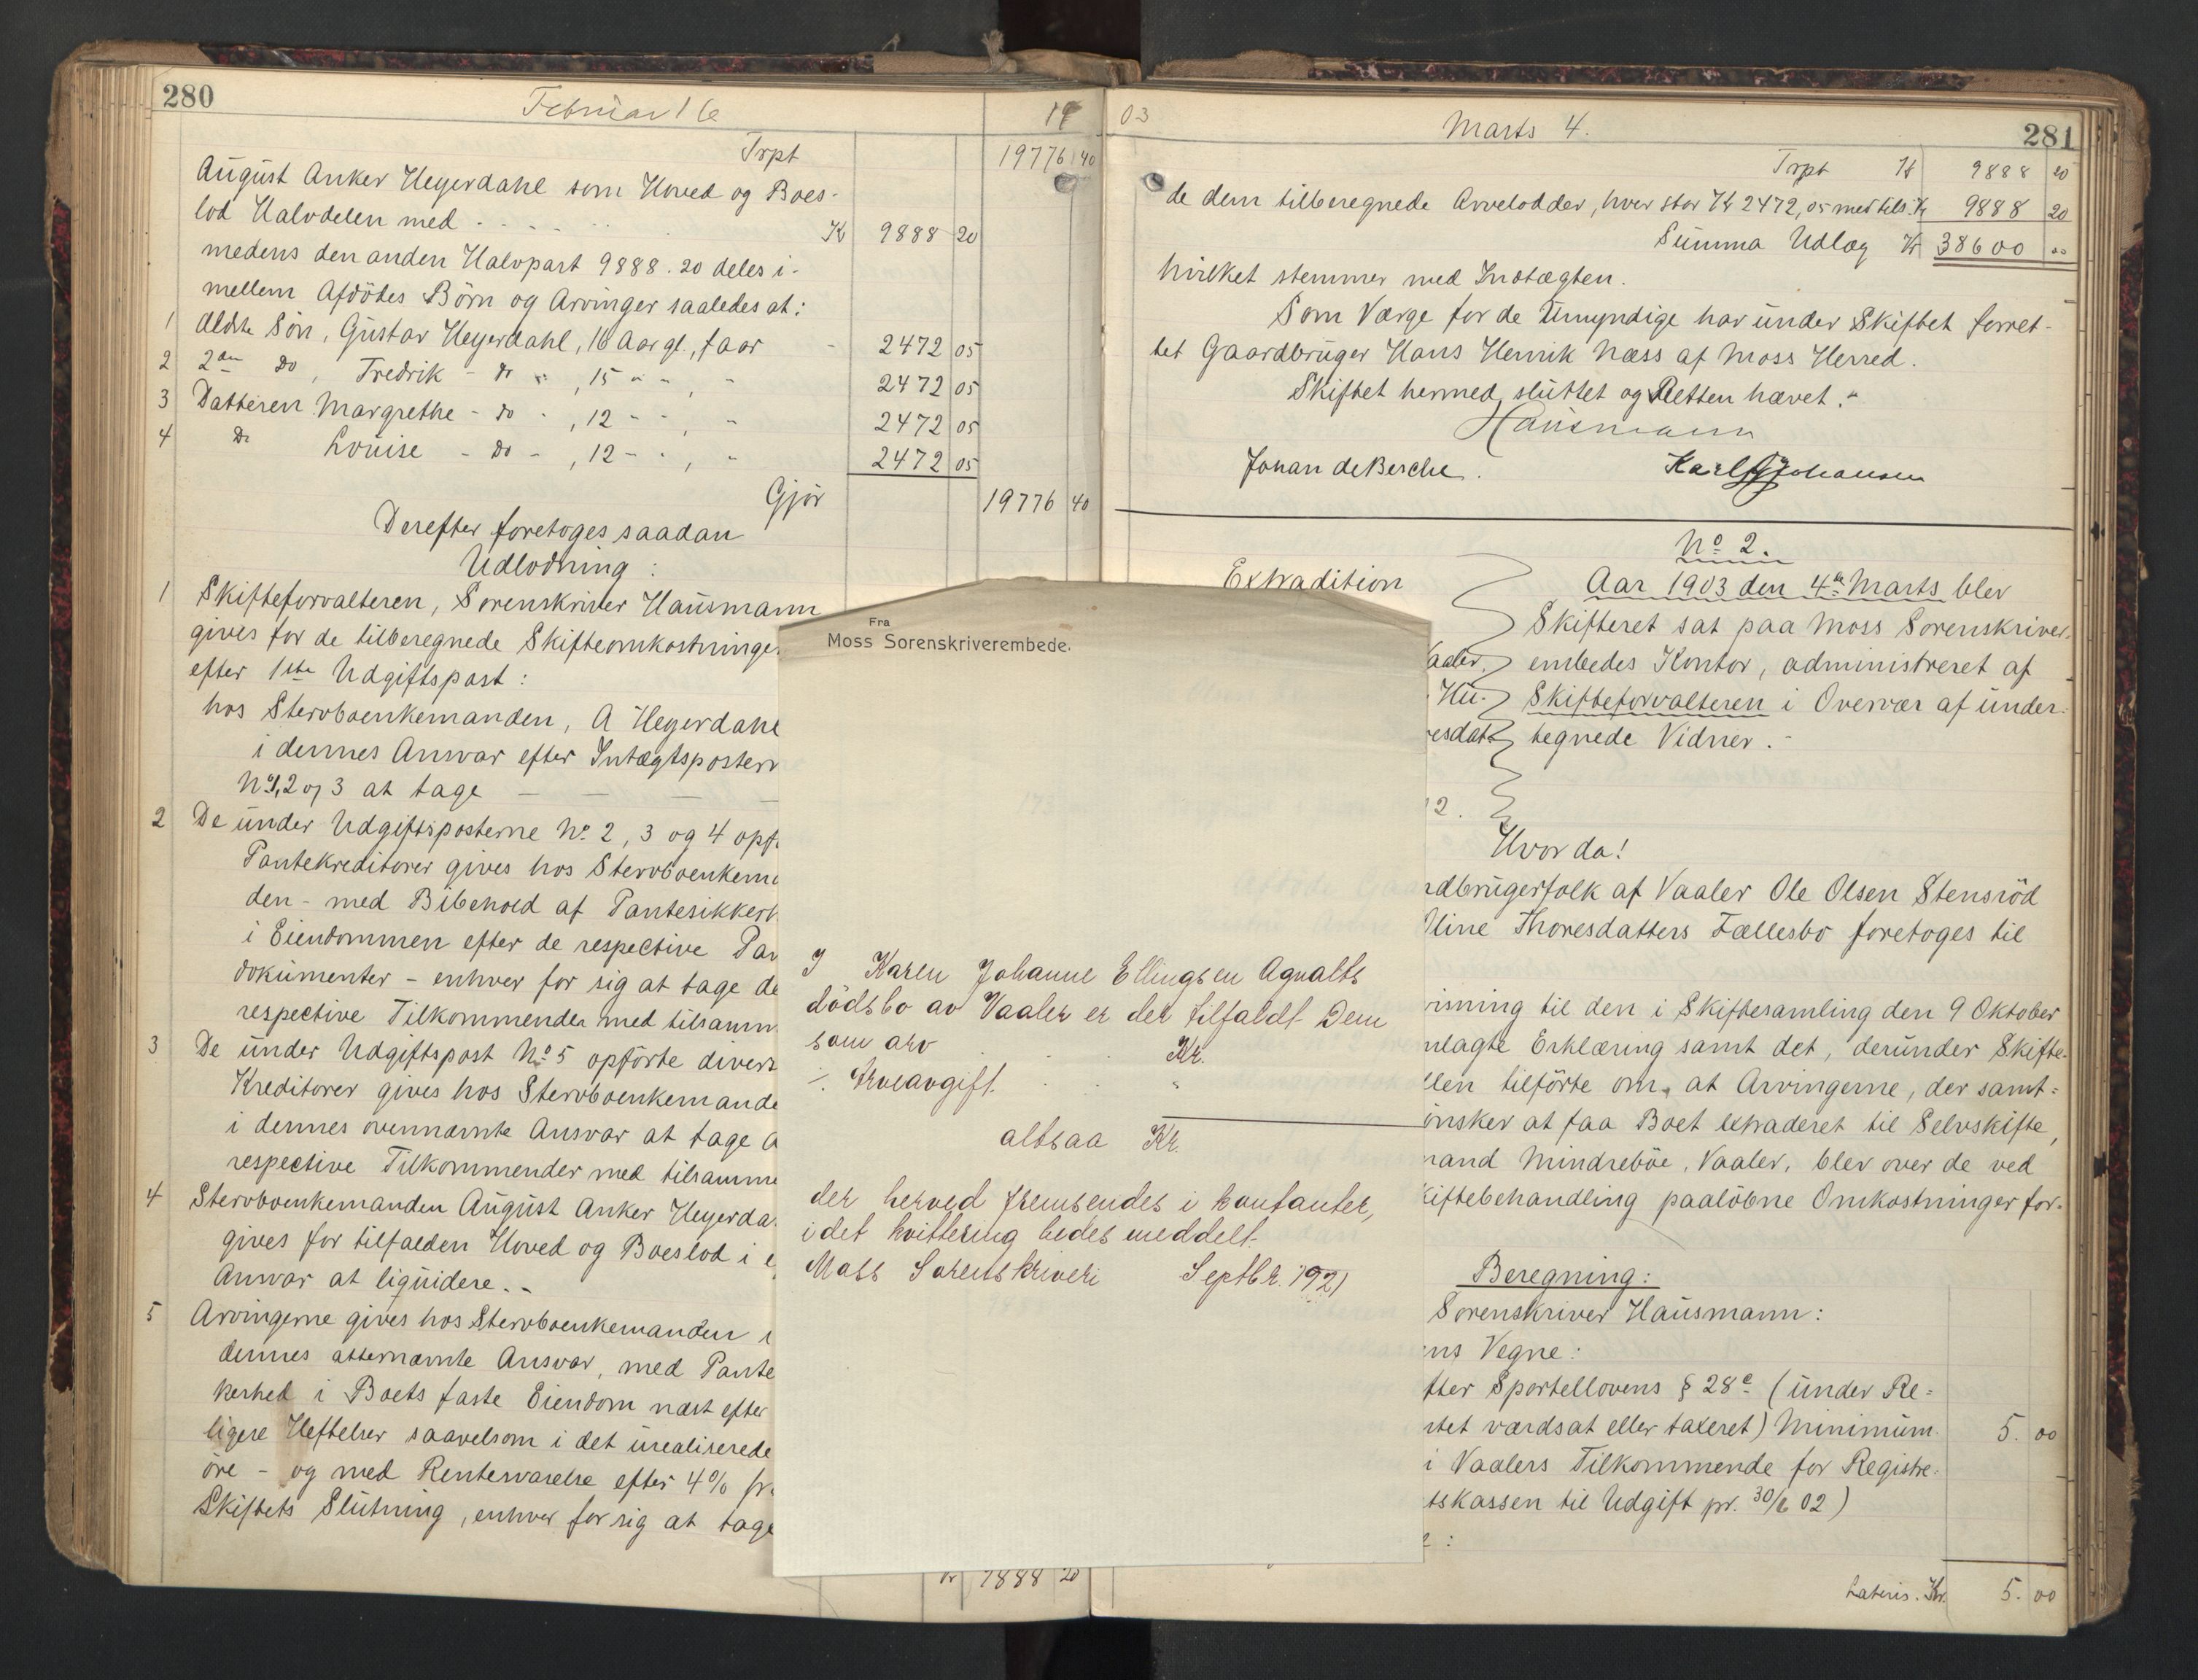 280
Februar 16
19
Trpt
19776 40
August Anker Heyerdahl som Hoved og Boes-
lod Halvdelen med - - - - Kr 9888 20
medens den anden Halvpart 9888.20 deles i-
mellem Afdödes Börn og Arvinger saaledes at:
1 Ældste Sön, Gustav Heyerdahl, 16 Aar gl, faar - 2472 05
2 2den Do, Fredrik - do -, 15 - -, - 2472 05
3 Datteren Margrethe - do -, 12 - -, - 2472 05
4 Do Louise - Do -, 12 - -, - 2472 05
Gjör 19776 40
Derefter foretoges saadan
Udlodning:
1 Skifteforvalteren, Sorenskriver Hausmann
gives for de tilberegnede Skifteomkostninge
efter 1ste Udgiftspost:
hos Stervboenkemanden, A Heyerdahl
i dennes Anvar efter Intægtspostern
No 1, 2 og 3 at tage - - - -
2 De under Udgiftsposterne No 2, 3 og 4 opf
Pantekreditorer gives hos Stervboenkema
den - med Bibehold af Pantesikkerh
i Eiendommen efter de respective Pan
dokumenter - enhver for sig at tage de
respective Tilkommende med tilsamm
3 De under Udgiftspost No 5 opförte divers
Kreditorer gives hos Stervboenkemande
i dennes ovennævnte Ansvar at tage d
respective Tilkommender med tilsamme
4 Stervboenkemanden August Anker Heyerda
gives for tilfalden Hoved og Boeslod i e
Anvar at liquidere.-
5 Arvingerne gives hos Stervboenkemanden i
dennes atternævnte Ansvar, med Pante
kerhed i Boets faste Eiendom næst efter
ligere Heftelser saavelsom i det urealiserede
öre - og med Rentesvarelse efter 4% fr
Skiftets Slutning, enhver for sig at tage
Kr 9888 20
Fra
Moss Sorenskriverembede.
I Karen Johanne Ellingsen Agnalts
dödsbo av Vaaler er der tilfaldt Dem
som arv . . Kr.
÷ Arveavgift . . "
altsaa Kr.
der herved fremsendes i kontanter,
idet kvittering bedes meddelt.
Moss Sorenskriveri Septbr. 1921
03
Marts 4.
281
Trpt Kr 9888 20
de dem tilberegnede Arvelodder, hver stor Kr 2472,05 med tils. Kr 9888 20
Summa Udlæg Kr 38600 00
hvilket stemmer med Indtægten.
Som Værge for de Umyndige har under Skiftet forret-
tet Gaardbruger Hans Henrik Næss af Moss Herred.
Skiftet hermed sluttet og Retten hævet.-
Hausmann
Johan de Besche. Karl G Johansen
No 2.
Extradition
Aar 1903 den 4de Marts blev
Skifteret sat paa Moss Sorenskriver-
aaler, embedes Kontor, administreret af
Hu- Skifteforvalteren i Overvær af under-
esdatt tegnede Vidner.-
2.
Hvor da!
rdbrugerfolk af Vaaler Ole Olsen Stensröd
line Thoresdatters Fællesbo foretoges til
isning til den i Skiftesamling den 9 Oktober
mlagte Erklæring samt det, derunder Skifte-
llen tilförte om, at Arvingerne, der samt-
önsker at faa Boet extraderet til Selvskifte,
mand Mindreböe, Vaaler, blev over de ved
kiftebehandling paalöbne Omkostninger for-
Beregning:
Sorenskriver Hausmann:
ns Vegne:
fter Sportellovens § 28 c (under Re-
tet værdsat eller taxeret) Minimum. 5. 00
i Vaalers Tilkommende for Registre-
tskassen til Udgift pr. 30/6 02)
:
Lateris. Kr. 5. 00